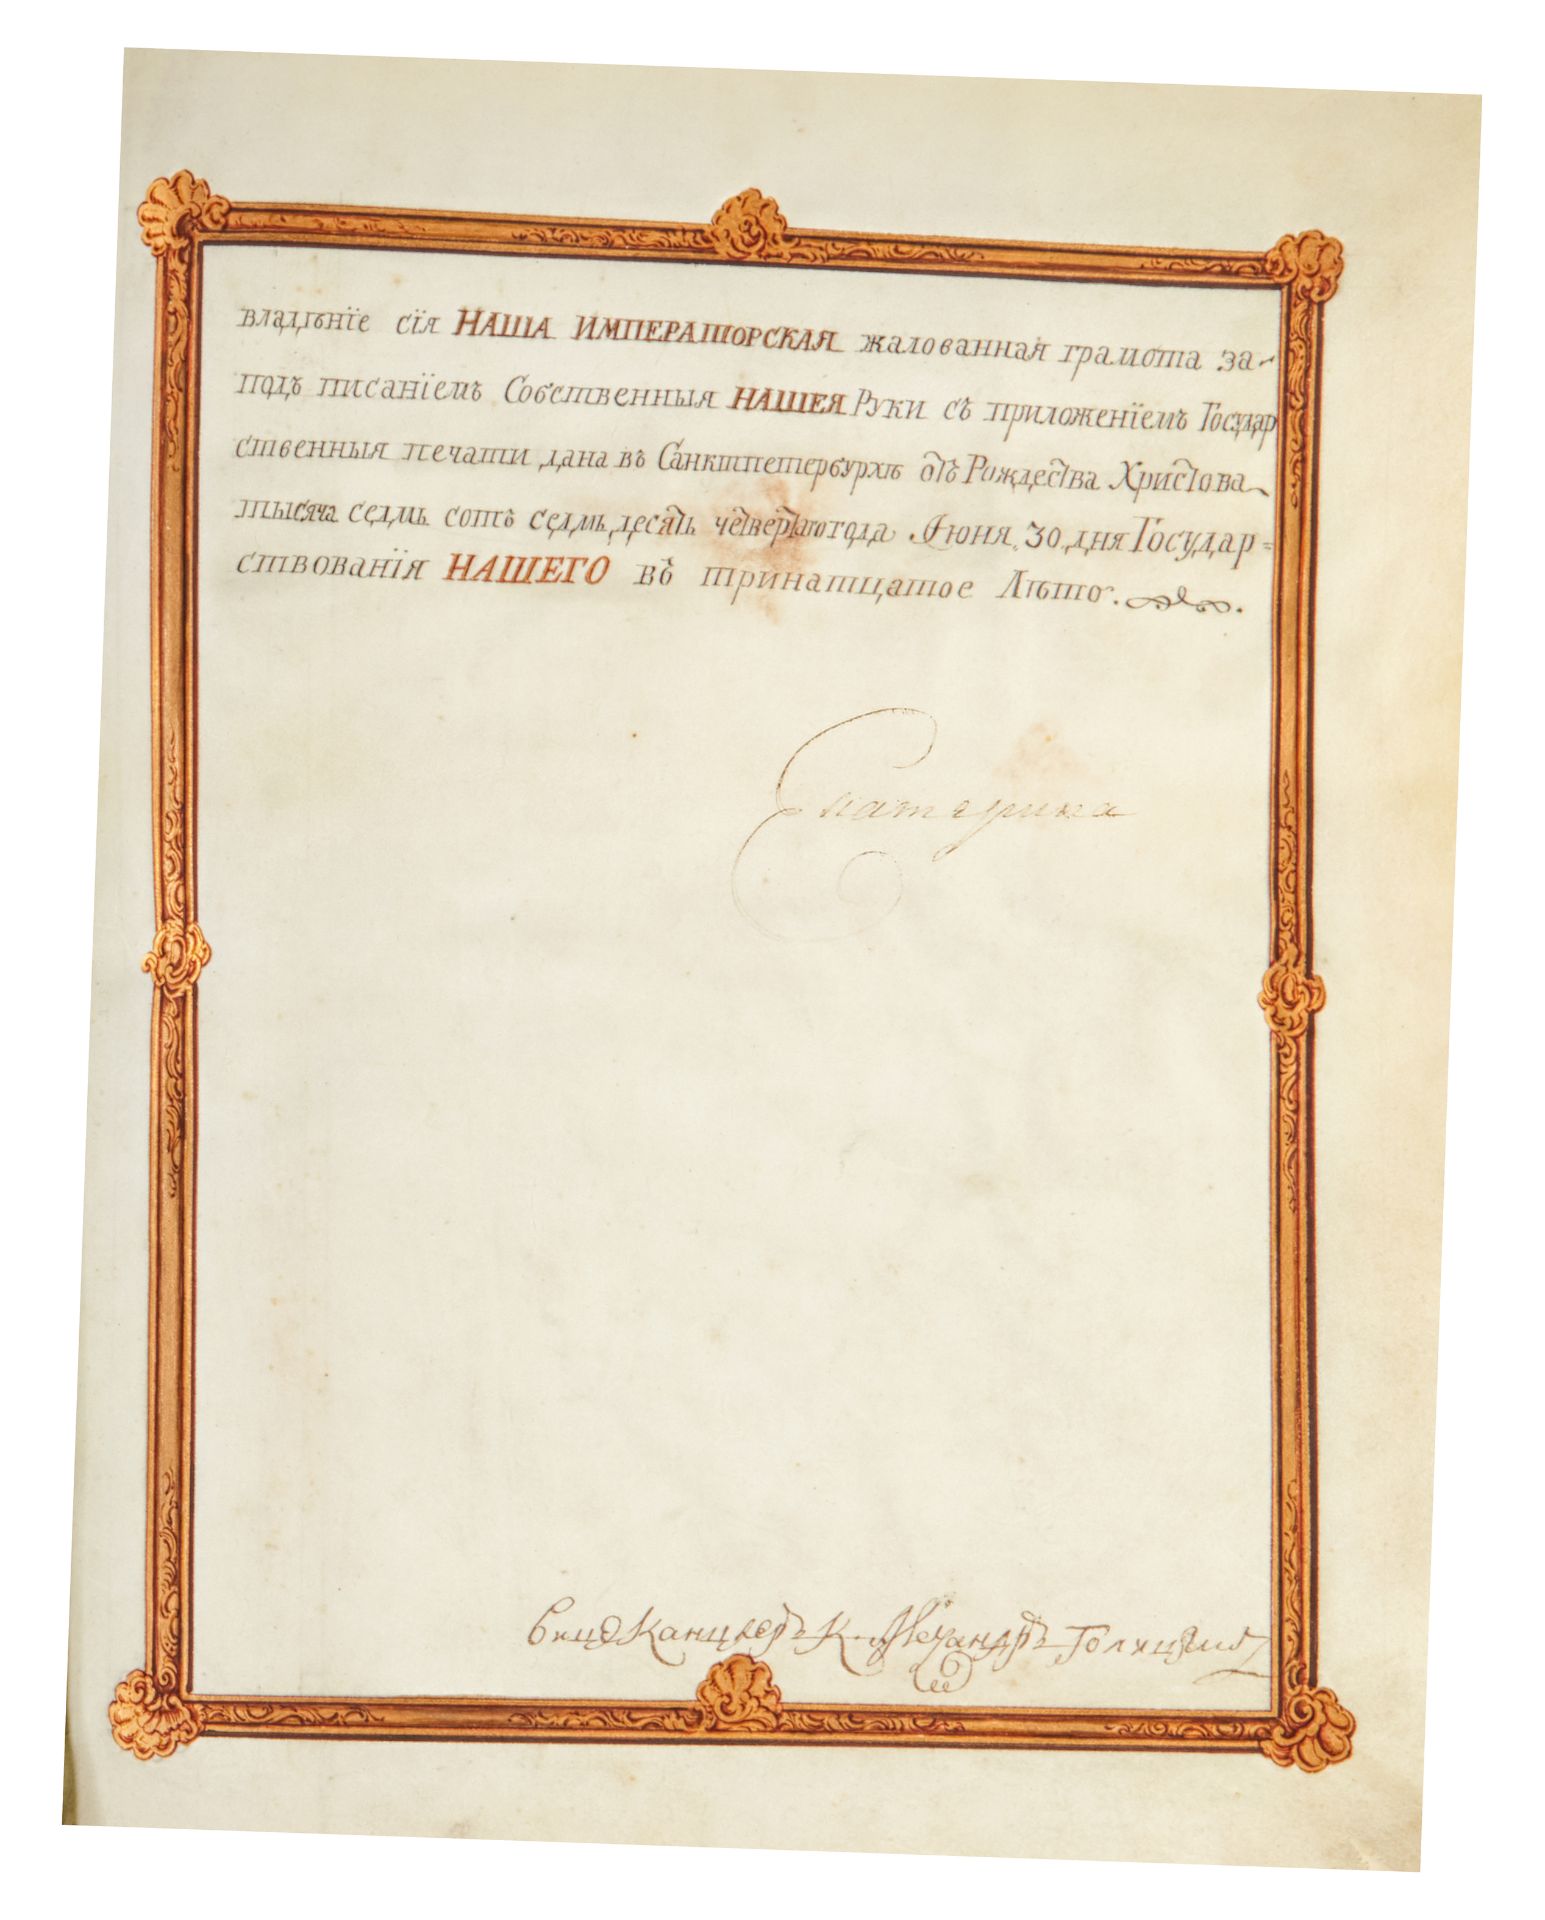 владѣнїе сїя НАША ИМПЕРАТОРСКАЯ жалованная грамота за-
подъ писанїемъ Собственныя НАШЕЯ Руки съ приложенїемъ Государ
ственныя печати дана въ Санктпетербурхѣ отъ Рождества Христова
тысяча седмь сотъ седмьдесять четвертаго года Іюня 30 дня Государ=
ствованїя НАШЕГО въ тринатцатое Лѣто.
Екатерина
Вице Канцлеръ К. Алеѯандръ Голицынъ